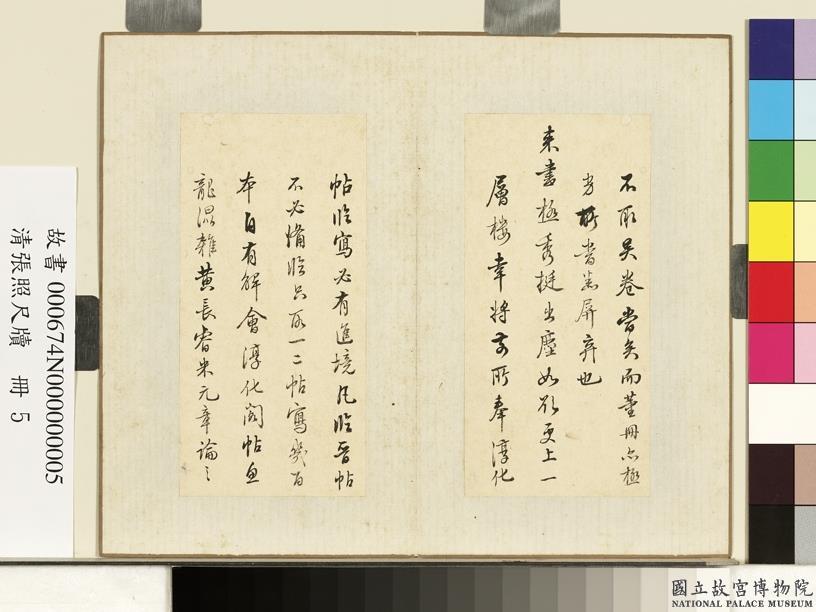 不取吴卷當矣而董冊亦極
劣所當並屏弃也
来書極秀挺出塵如欲更上一
層樓幸将前所奉淳化
帖临寫必有進境凡临晋帖
不必備临只取一二帖寫幾百
本自有解會淳化阁帖魚
龍混雜黄長睿米元章論之
故書 000674N000000005
清張照尺牘 冊 5
國立故宮博物院
NATIONAL PALACE MUSEUM